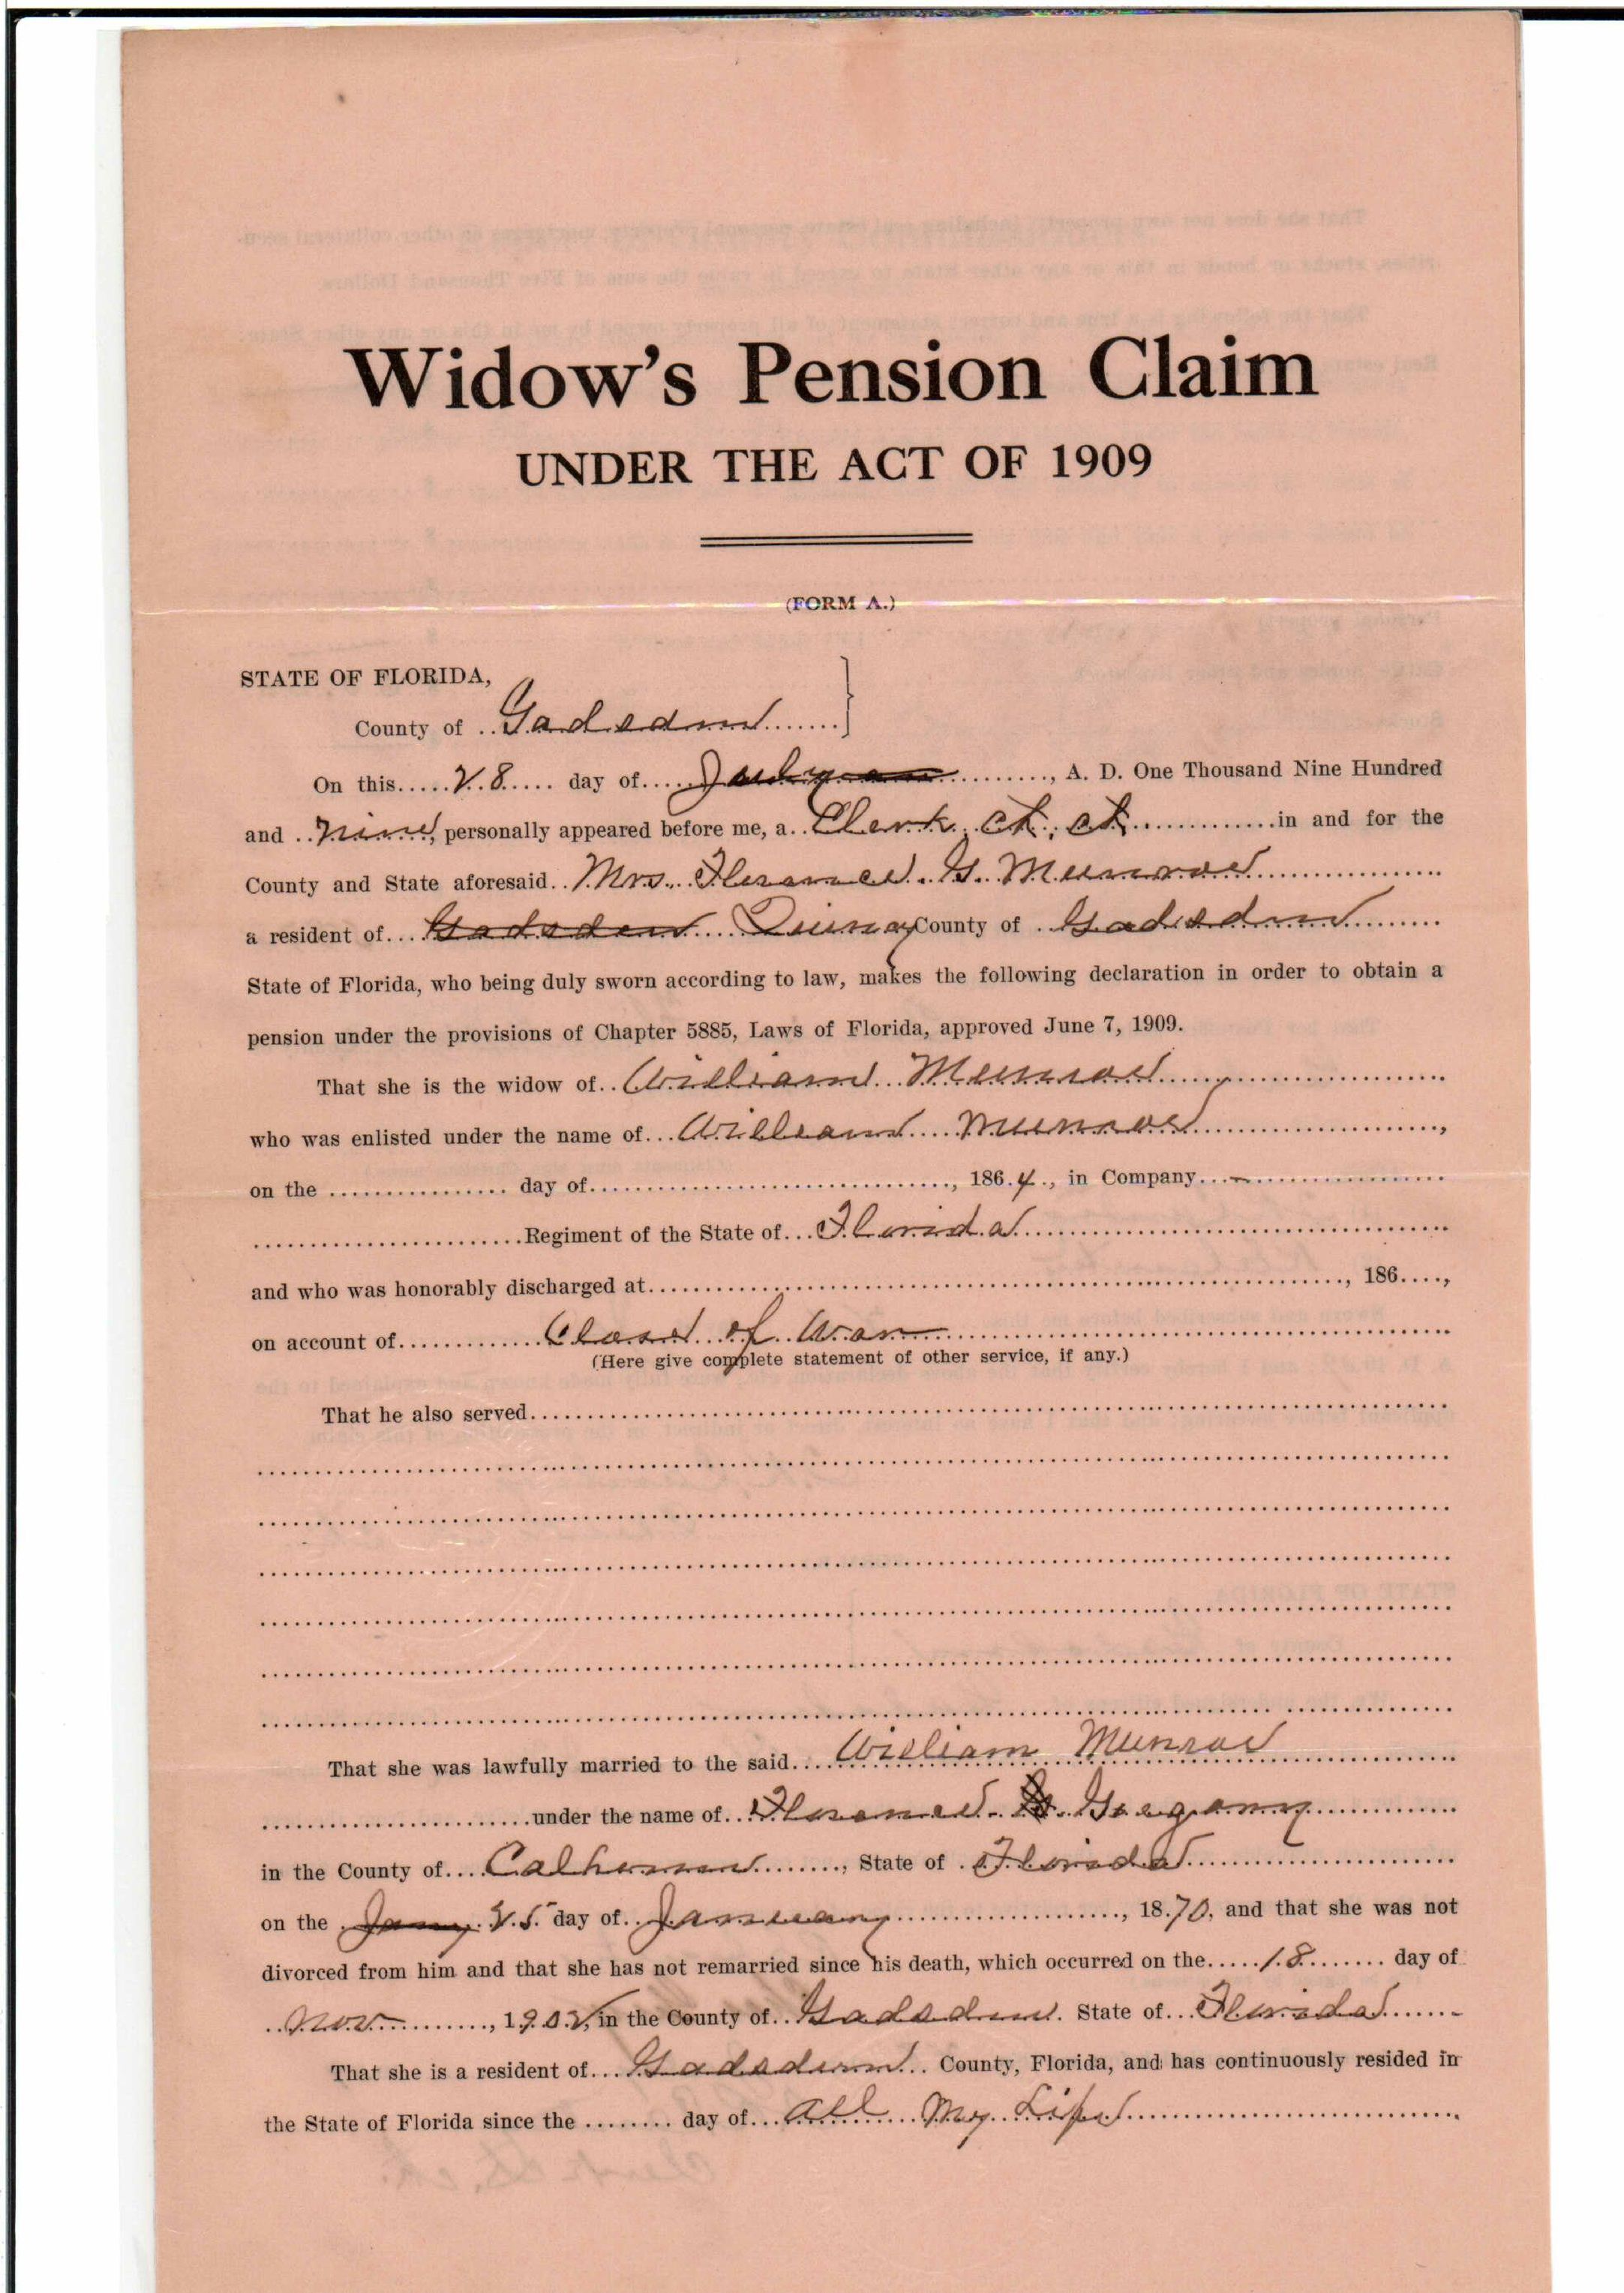 Widow's Pension Claim
UNDER THE ACT OF 1909
(FORM A.)
STATE OF FLORIDA,
County of Gadsden
On this 28 day of July, A. D. One Thousand Nine Hundred
and nine, personally appeared before me, a Clerk Ct. Ct. in and for the
County and State aforesaid Mrs. Florence G. Munroe
a resident of Gadsden Quincy County of Gadsden
State of Florida, who being duly sworn according to law, makes the following declaration in order to obtain a
pension under the provisions of Chapter 5885, Laws of Florida, approved June 7, 1909.
That she is the widow of William Munroe
who was enlisted under the name of William Munroe,
on the day of , 1864, in Company -
Regiment of the State of Florida
and who was honorably discharged at , 186 ,
on account of Close of War
(Here give complete statement of other service, if any.)
That he also served
That she was lawfully married to the said William Munroe
under the name of Florence Gregory
in the County of Calhoun, State of Florida
on the Jany 25 day of January, 1870, and that she was not
divorced from him and that she has not remarried since his death, which occurred on the 18 day of
Nov, 1902, in the County of Gadsden. State of Florida
That she is a resident of Gadsden County, Florida, and has continuously resided in
the State of Florida since the day of all My Life